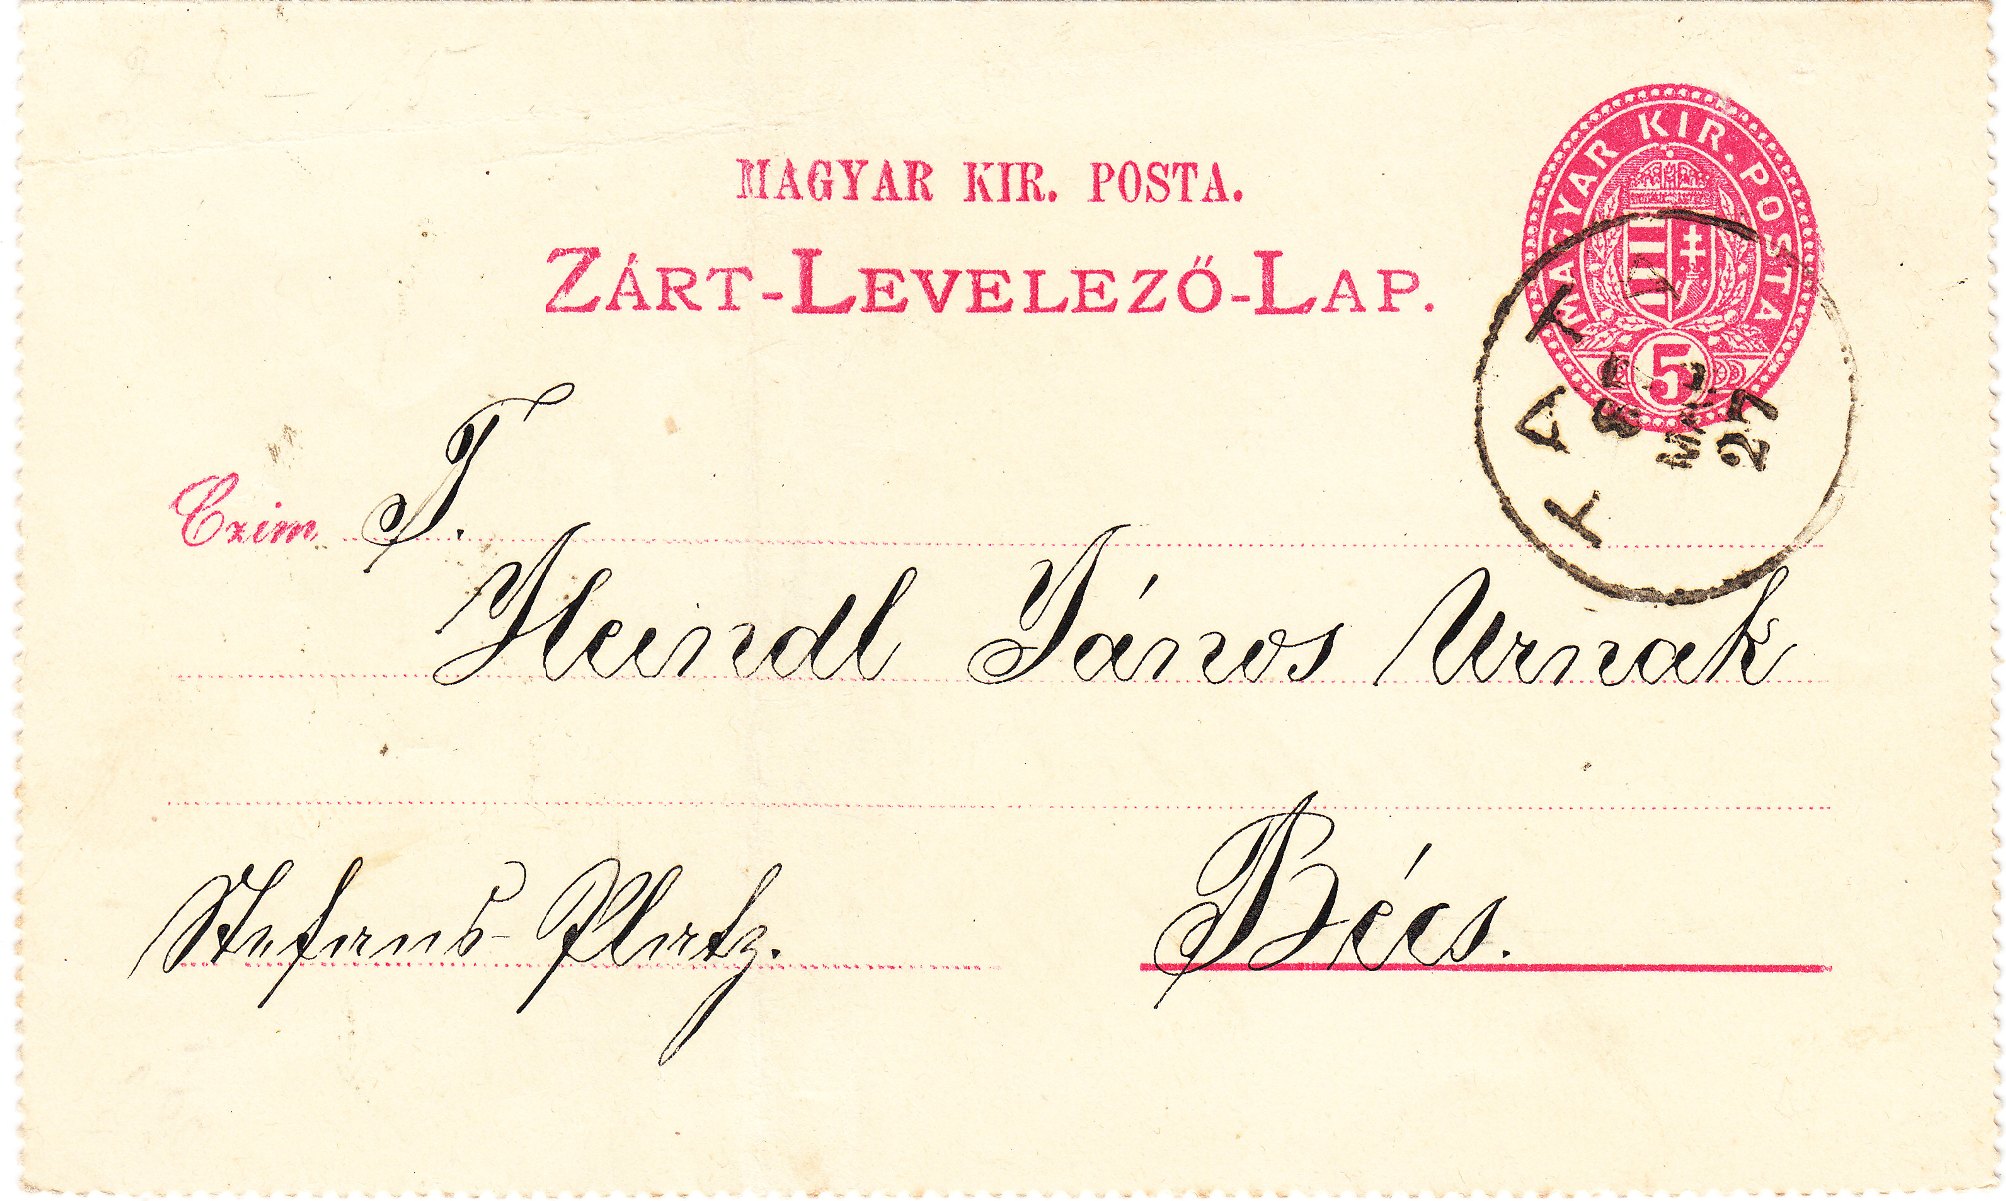 MAGYAR KIR. POSTA.
ZÁRT-LEVELEZŐ-LAP.
MAGYAR KIR. POSTA
5
TAT
MAI
27
Czim T.
Heindl János Urnak
Stefans-Platz.
Bécs.